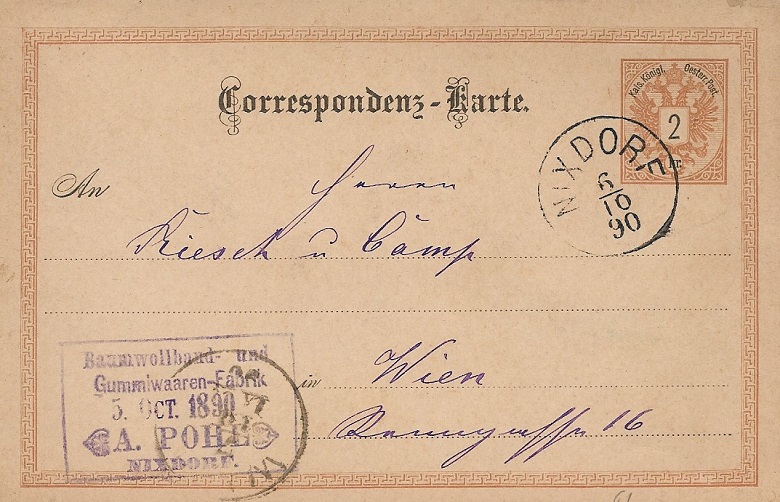 Correspondenz-Karte.
Kais. Königl. Oesterr. Post.
2
kr.
NIXDORF
6/10
90
An Herrn
Riesch u Comp
in Wien
16
Baumwollband- und
Gummiwaaren-Fabrik
5. OCT. 1890
A. POHL
NIXDORF.